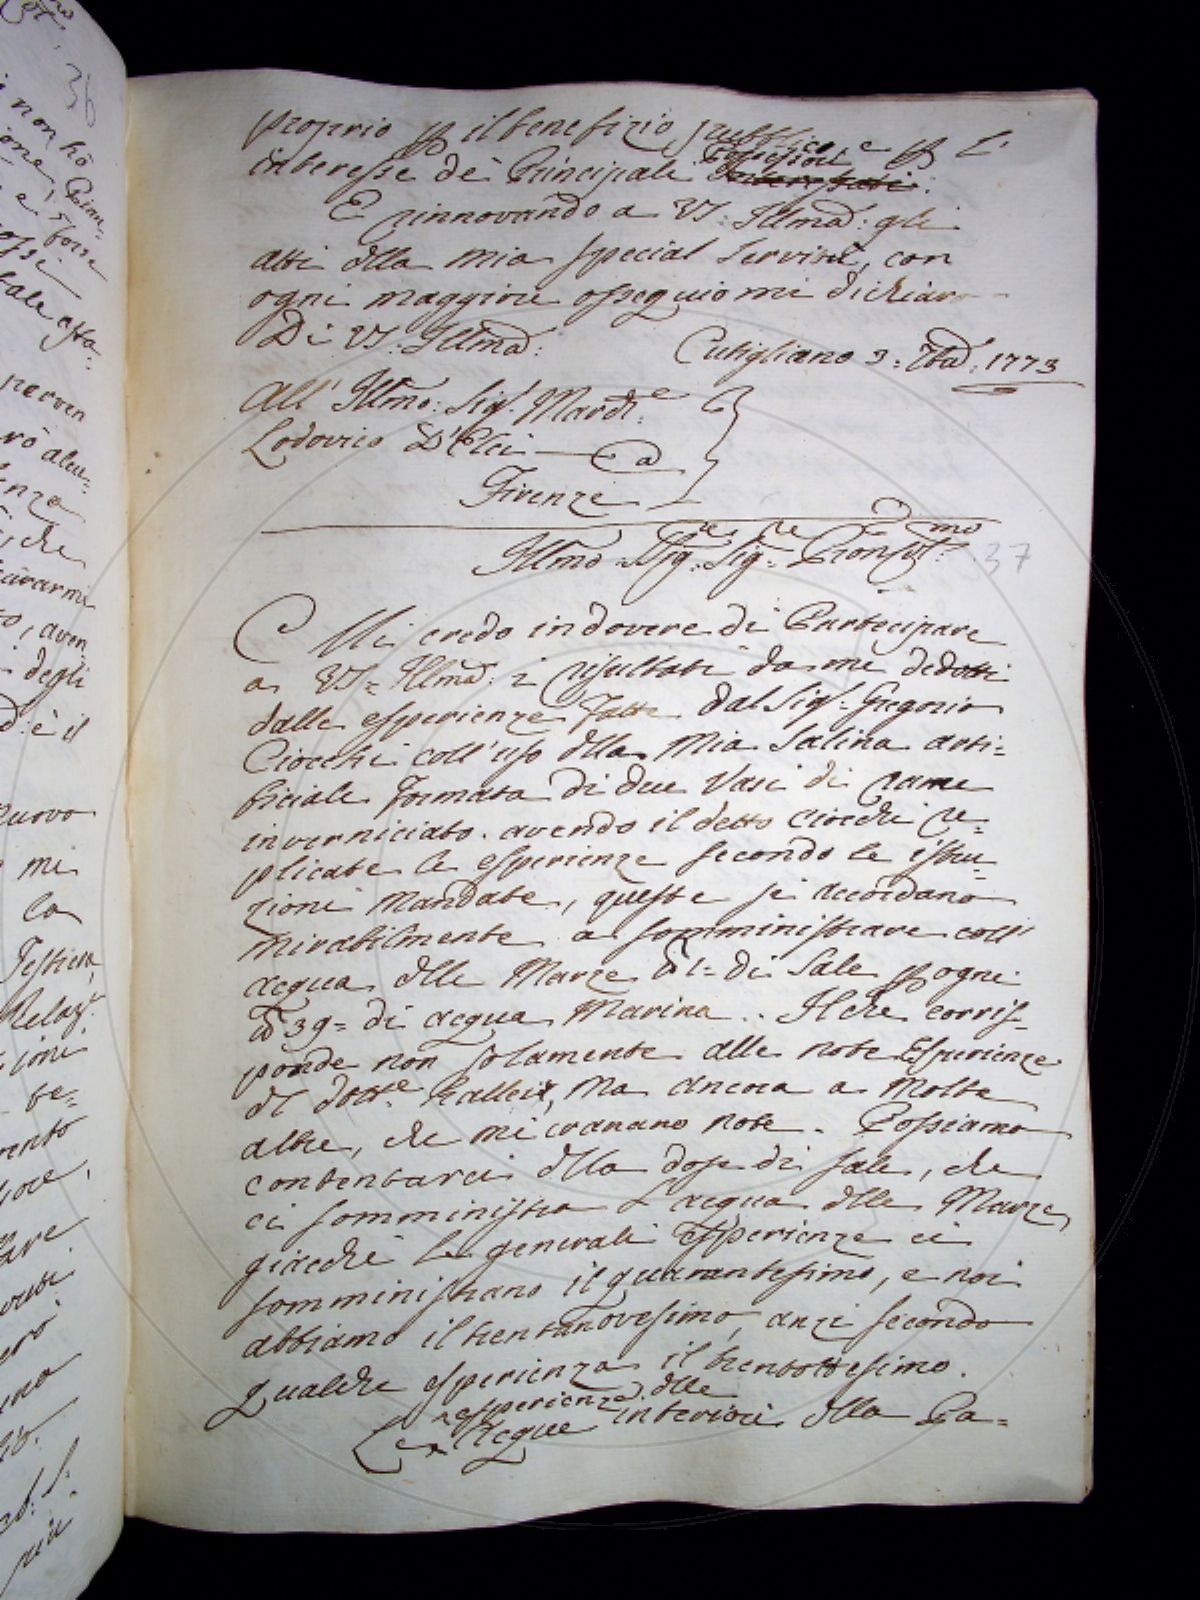 proprio p il benefizio pubblico e p l'
interesse de' Principali
E rinnovando a VS: Illma: gli
atti dlla mia special servitù, con
ogni maggiore ossequio mi dichiaro
Di VS: Illma:
Cutigliano 3: 7bre 1773
All' Illmo: Sigr. March.e
Lodovico D'Elci — a
Firenze
Illmo Sigre Sigre Pron Colmo
37
Mi credo in dovere di Partecipare
a VS= Illma: i risultati da me dedotti
dalle esperienze fatte dal Sigr. Gregorio
Ciocchi coll'uso dlla Mia Salina arti=
ficiale formata di due Vasi di rame
inverniciato. avendo il detto Ciocchi re=
plicate le esperienze secondo le istru=
zioni mandate, queste si accordano
mirabilmente a somministrare coll'
acqua dlle Marze 1= di Sale p ogni
39= di acqua Marina.. Il che corris=
ponde non solamente alle note Esperienze
dl dott.e Halleii, Ma ancora a Molte
altre, che mi erano note. Possiamo
contentarci dlla dose di sale, che
ci somministra l'acqua dlle Marze,
giacchè le generali esperienze ci
somministrano il quarantesimo, e noi
abbiamo il trentanovesimo, anzi secondo
qualche esperienza il trentottesimo.
esperienze dlle
Le Acque inferiori dlla Pa=
36
non hò
e forse
tale
perven
mi
la
be=
più